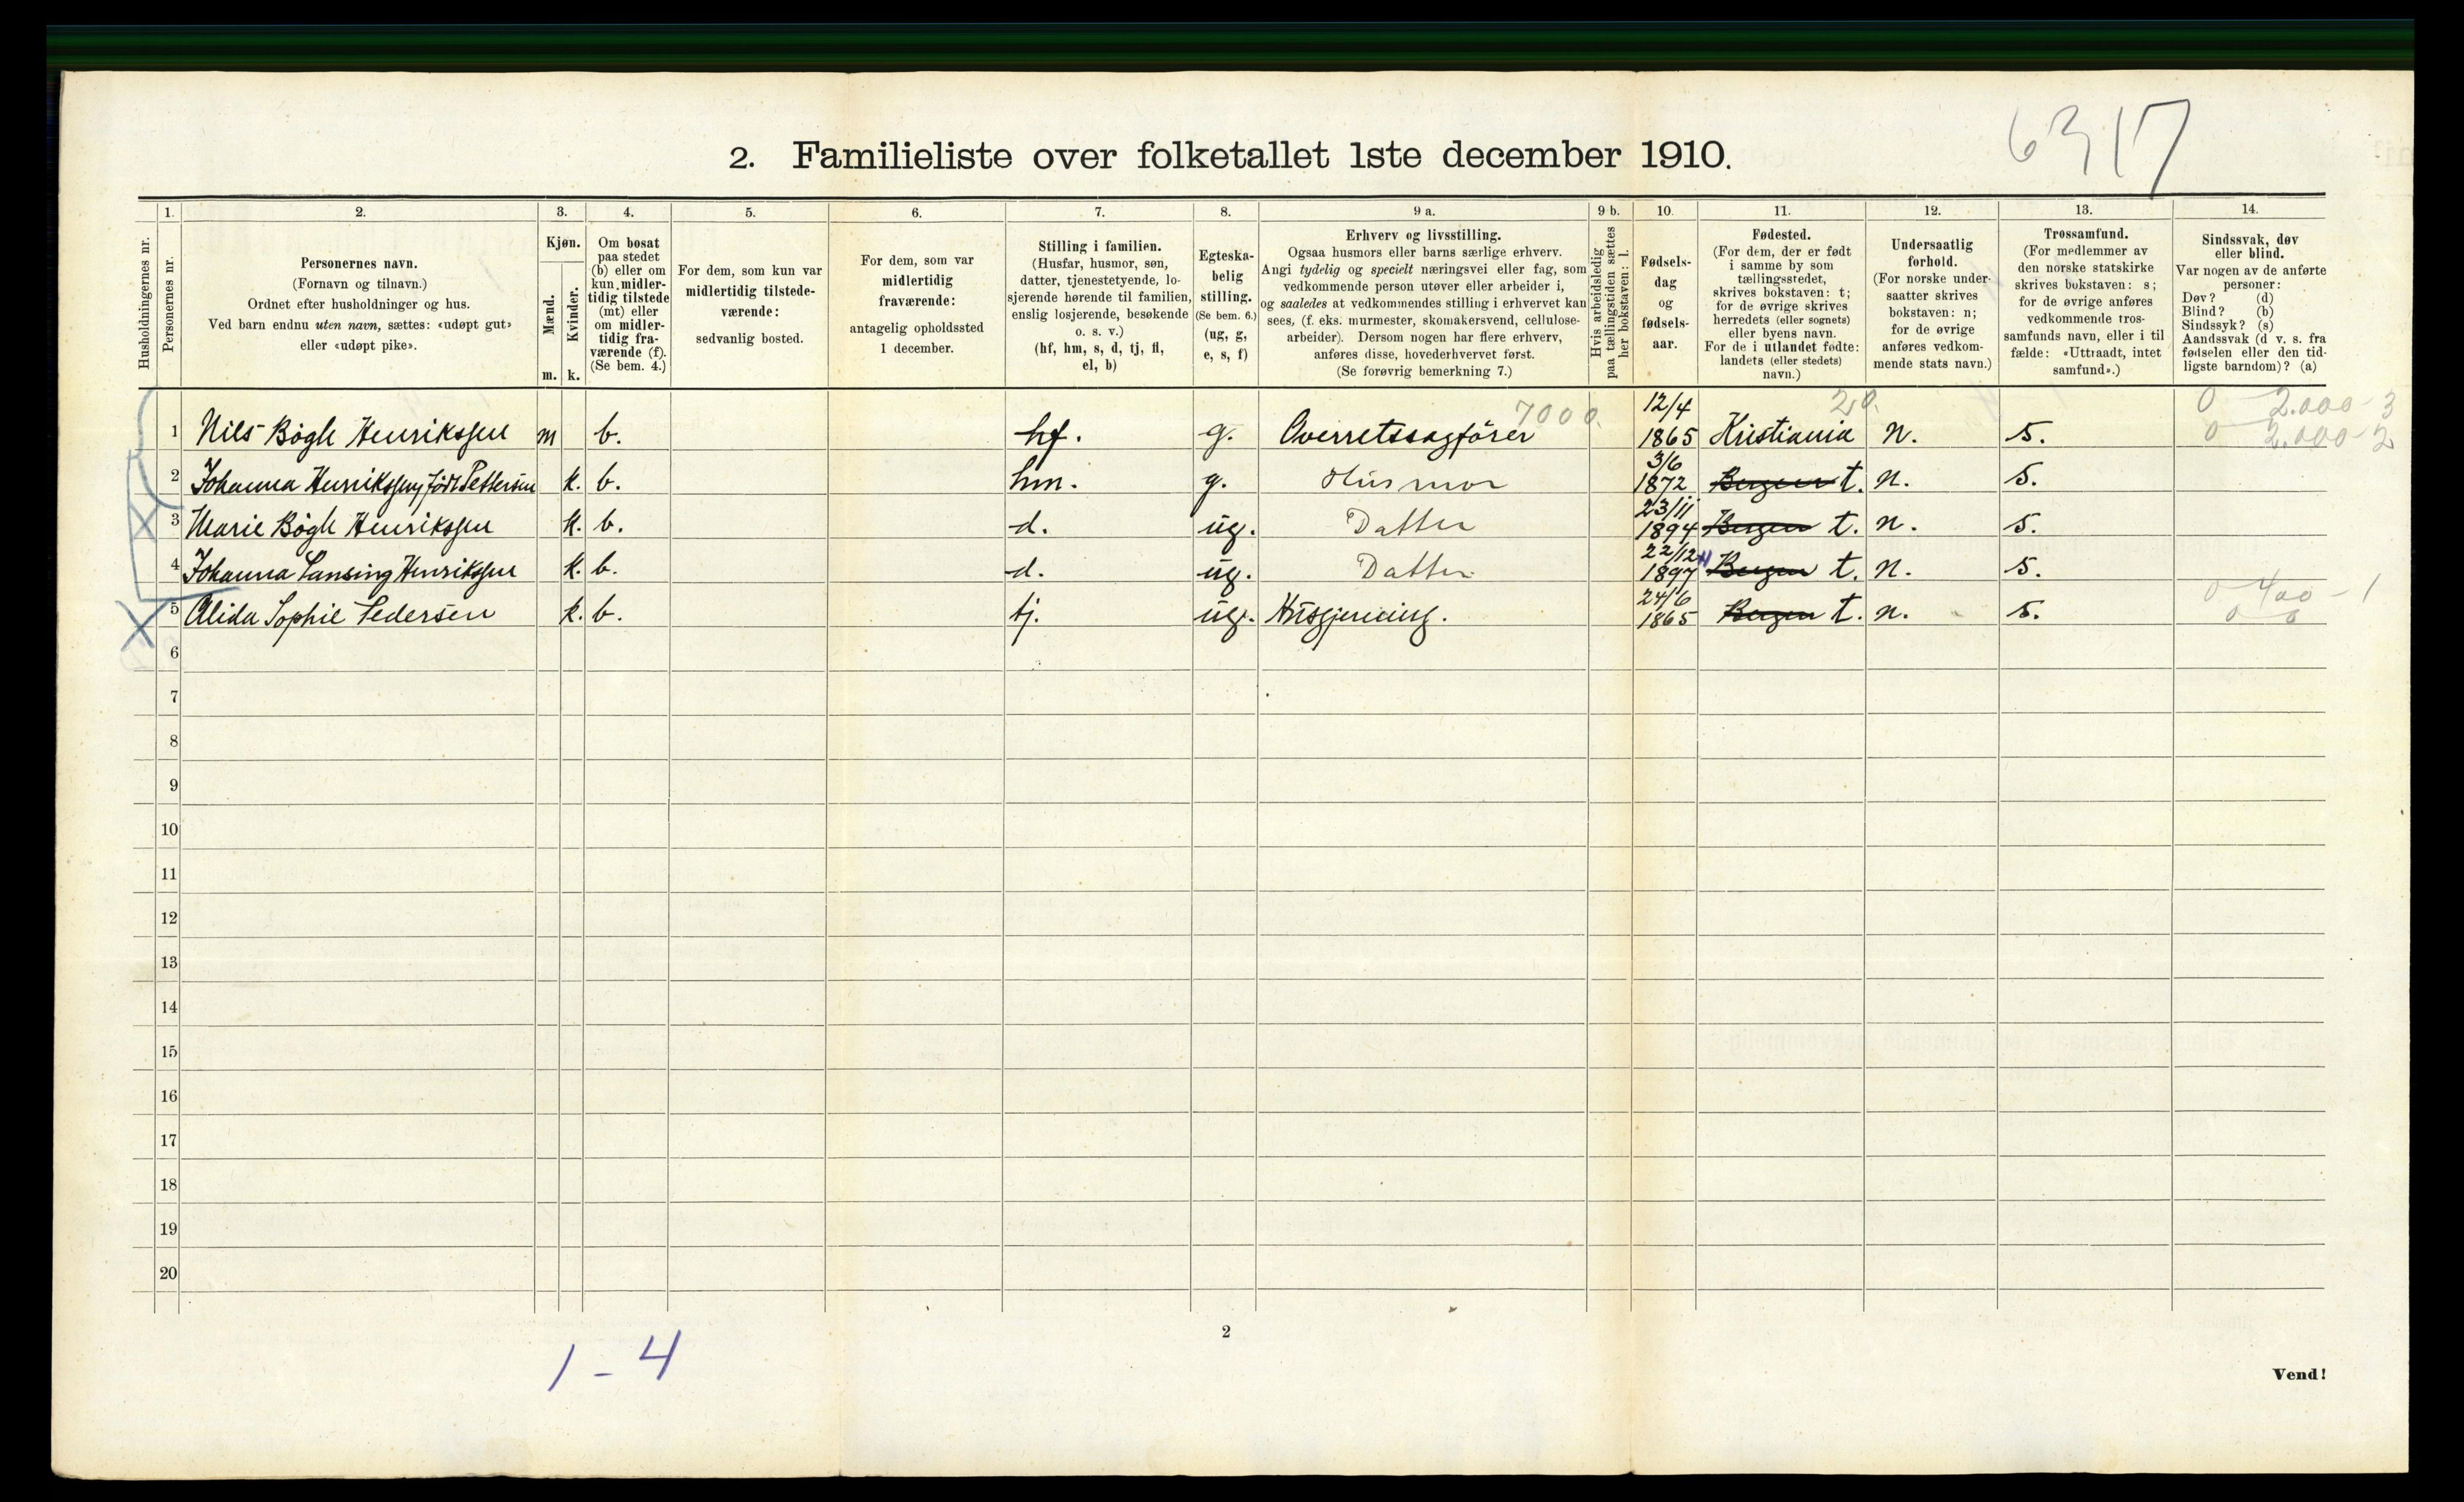 6317
2. Familieliste over folketallet 1ste december 1910.
Husholdningernes nr.
1.
Personernes nr.
2.
Personernes navn.
(Fornavn og tilnavn.)
Ordnet efter husholdninger og hus.
Ved barn endnu uten navn, sættes: «udøpt gut»
eller «udøpt pike».
3.
Kjøn.
Mænd.
Kvinder.
m. k.
4.
Om bosat
paa stedet
(b) eller om
kun midler-
tidig tilstede
(mt) eller
om midler-
tidig fra-
værende (f).
(Se bem. 4.)
5.
For dem, som kun var
midlertidig tilstede-
værende:
sedvanlig bosted.
6.
For dem, som var
midlertidig
fraværende:
antagelig opholdssted
1 december.
7.
Stilling i familien.
(Husfar, husmor, søn,
datter, tjenestetyende, lo-
sjerende hørende til familien,
enslig losjerende, besøkende
o. s. v.)
(hf, hm, s, d, tj, fl,
el, b)
8.
Egteska-
belig
stilling.
(Se bem. 6.)
(ug, g,
e, s, f)
9 a.
Erhverv og livsstilling.
Ogsaa husmors eller barns særlige erhverv.
Angi tydelig og specielt næringsvei eller fag, som
vedkommende person utøver eller arbeider i,
og saaledes at vedkommendes stilling i erhvervet kan
sees, (f. eks. murmester, skomakersvend, cellulose-
arbeider). Dersom nogen har flere erhverv,
anføres disse, hovederhvervet først.
(Se forøvrig bemerkning 7.)
9 b.
Hvis arbeidsledig
paa tællingstiden sættes
her bokstaven: l.
10.
Fødsels-
dag
og
fødsels-
aar.
11.
Fødested.
(For dem, der er født
i samme by som
tællingsstedet,
skrives bokstaven: t;
for de øvrige skrives
herredets (eller sognets)
eller byens navn.
For de i utlandet fødte:
landets (eller stedets)
navn.)
12.
Undersaatlig
forhold.
(For norske under-
saatter skrives
bokstaven: n;
for de øvrige
anføres vedkom-
mende stats navn.)
13.
Trossamfund.
(For medlemmer av
den norske statskirke
skrives bokstaven: s;
for de øvrige anføres
vedkommende tros-
samfunds navn, eller i til
fælde: «Uttraadt, intet
samfund».)
14.
Sindssvak, døv
eller blind.
Var nogen av de anførte
personer:
Døv? (d)
Blind? (b)
Sindssyk? (s)
Aandssvak (d v. s. fra
fødselen eller den tid-
ligste barndom)? (a)
7000. 12/4 20. 0 2.000-3
1 Nils Bøgh Henrikssen m b. hf. g. Overretssagfører 1865 Kristiania n. s. 0 2.000-2
3/6
2 Johanna Henrikssen født Pettersen k. b. hm. g. Husmor 1872 Bergen t. n. s.
23/11
3 Marie Bøgh Henrikssen k. b. d. ug. Datter 1894 Bergen t. n. s.
22/12
4 Johanna Lansing Henrikssen k. b. d. ug. Datter 1897 Bergen t. n. s.
24/6 0 400-1
5 Alida Sophie Pedersen k. b. tj. ug. Husgjerning. 1865 Bergen t. n. s. 0 0
6
7
8
9
10
11
12
13
14
15
16
17
18
19
20
2
1-4
Vend!